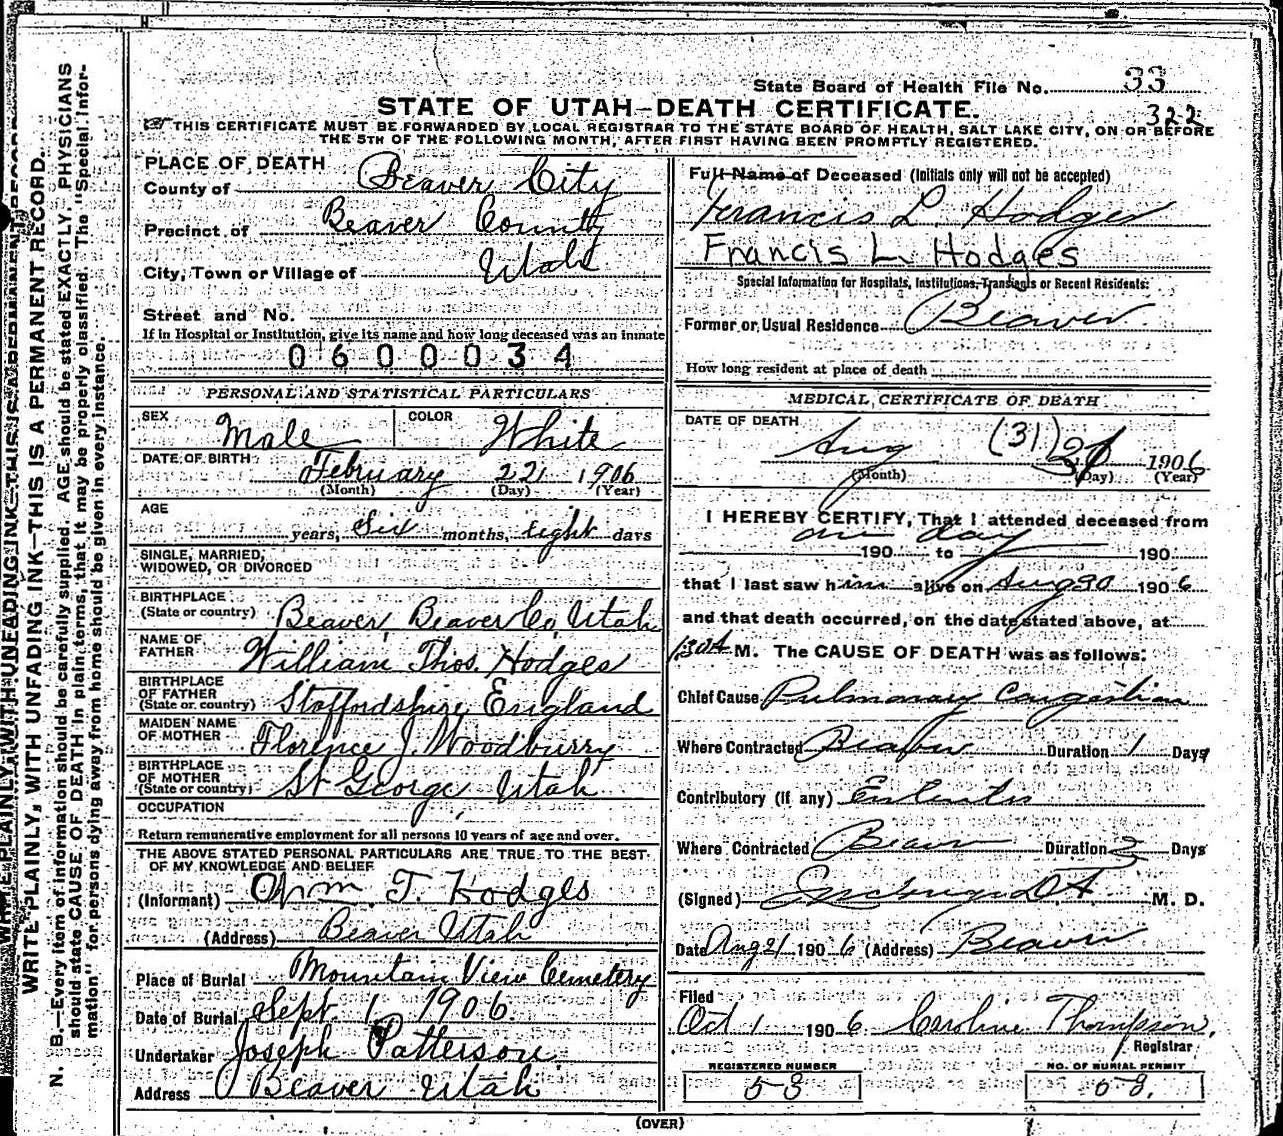 WRITE PLAINLY, WITH UNFADING INK—THIS IS A PERMANENT RECORD.
N. B.—Every item of information should be carefully supplied. AGE should be stated EXACTLY. PHYSICIANS
should state CAUSE OF DEATH in plain terms, that it may be properly classified. The "Special Infor-
mation" for persons dying away from home should be given in every instance.
State Board of Health File No. 33
322
STATE OF UTAH—DEATH CERTIFICATE.
THIS CERTIFICATE MUST BE FORWARDED BY LOCAL REGISTRAR TO THE STATE BOARD OF HEALTH, SALT LAKE CITY, ON OR BEFORE
THE 5TH OF THE FOLLOWING MONTH, AFTER FIRST HAVING BEEN PROMPTLY REGISTERED.
PLACE OF DEATH
County of Beaver City
Precinct of Beaver County
City, Town or Village of Utah
Street and No.
If in Hospital or Institution, give its name and how long deceased was an inmate
0600034
PERSONAL AND STATISTICAL PARTICULARS
SEX Male COLOR White
DATE OF BIRTH February 22 1906
(Month) (Day) (Year)
AGE
years, Six months, eight days
SINGLE, MARRIED,
WIDOWED, OR DIVORCED
BIRTHPLACE
(State or country) Beaver, Beaver Co, Utah
NAME OF
FATHER William Thos. Hodges
BIRTHPLACE
OF FATHER
(State or country) Staffordshire, England
MAIDEN NAME
OF MOTHER Florence J. Woodburry
BIRTHPLACE
OF MOTHER
(State or country) St George, Utah
OCCUPATION
Return remunerative employment for all persons 10 years of age and over.
THE ABOVE STATED PERSONAL PARTICULARS ARE TRUE TO THE BEST
OF MY KNOWLEDGE AND BELIEF
(Informant) Wm. T. Hodges
(Address) Beaver Utah
Place of Burial Mountain View Cemetery
Date of Burial Sept 1, 1906.
Undertaker Joseph Patterson
Address Beaver Utah
Full Name of Deceased (Initials only will not be accepted)
Francis L. Hodges
Francis L. Hodges
Special Information for Hospitals, Institutions, Transients or Recent Residents:
Former or Usual Residence Beaver
How long resident at place of death
MEDICAL CERTIFICATE OF DEATH
DATE OF DEATH
Aug (31) 1906
(Month) (Day) (Year)
I HEREBY CERTIFY, That I attended deceased from
one day
190 to 190
that I last saw him alive on Aug 30 1906
and that death occurred, on the date stated above, at
M. The CAUSE OF DEATH was as follows:
Chief Cause Pulmonary Congestion
Where Contracted Beaver Duration 1 Days
Contributory (if any)
Where Contracted Beaver Duration Days
(Signed) M. D.
Date Aug 1906 (Address) Beaver
Filed
Oct 1 1906 Caroline Thompson,
Registrar
REGISTERED NUMBER
58
NO. OF BURIAL PERMIT
58.
(OVER)